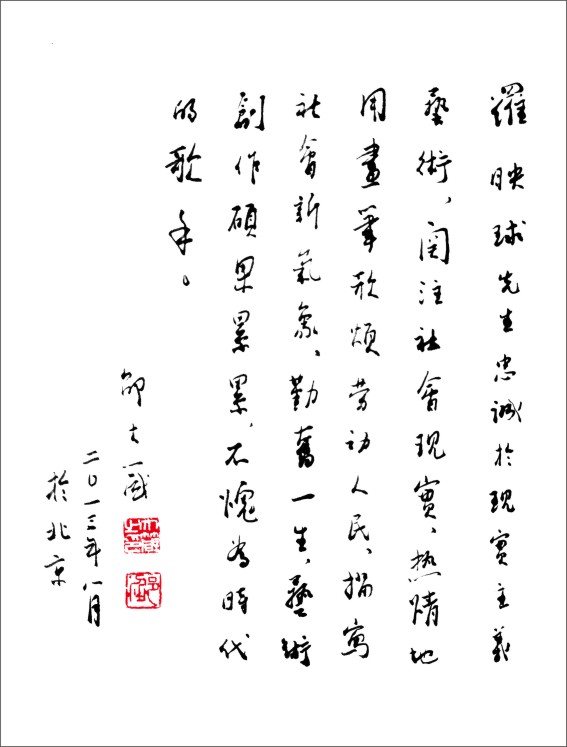 羅映球先生忠誠於現實主義
藝術、関注社會現實、热情地
用畫筆歌頌劳动人民、描寫
社會新氣象、勤奮一生、藝術
創作碩果累累、不愧為時代
的歌手。
邵大箴
二〇一三年八月
於北京